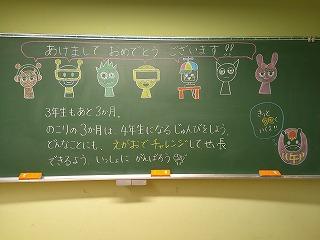 あけまして おめでとう ございます!!
3年生もあと3か月。
のこりの3か月は、4年生になるじゅんびをしよう。
どんなことにも、えがおでチャレンジしてせい長
できるよう、いっしょに がんばろう
きっと
いくよ!!